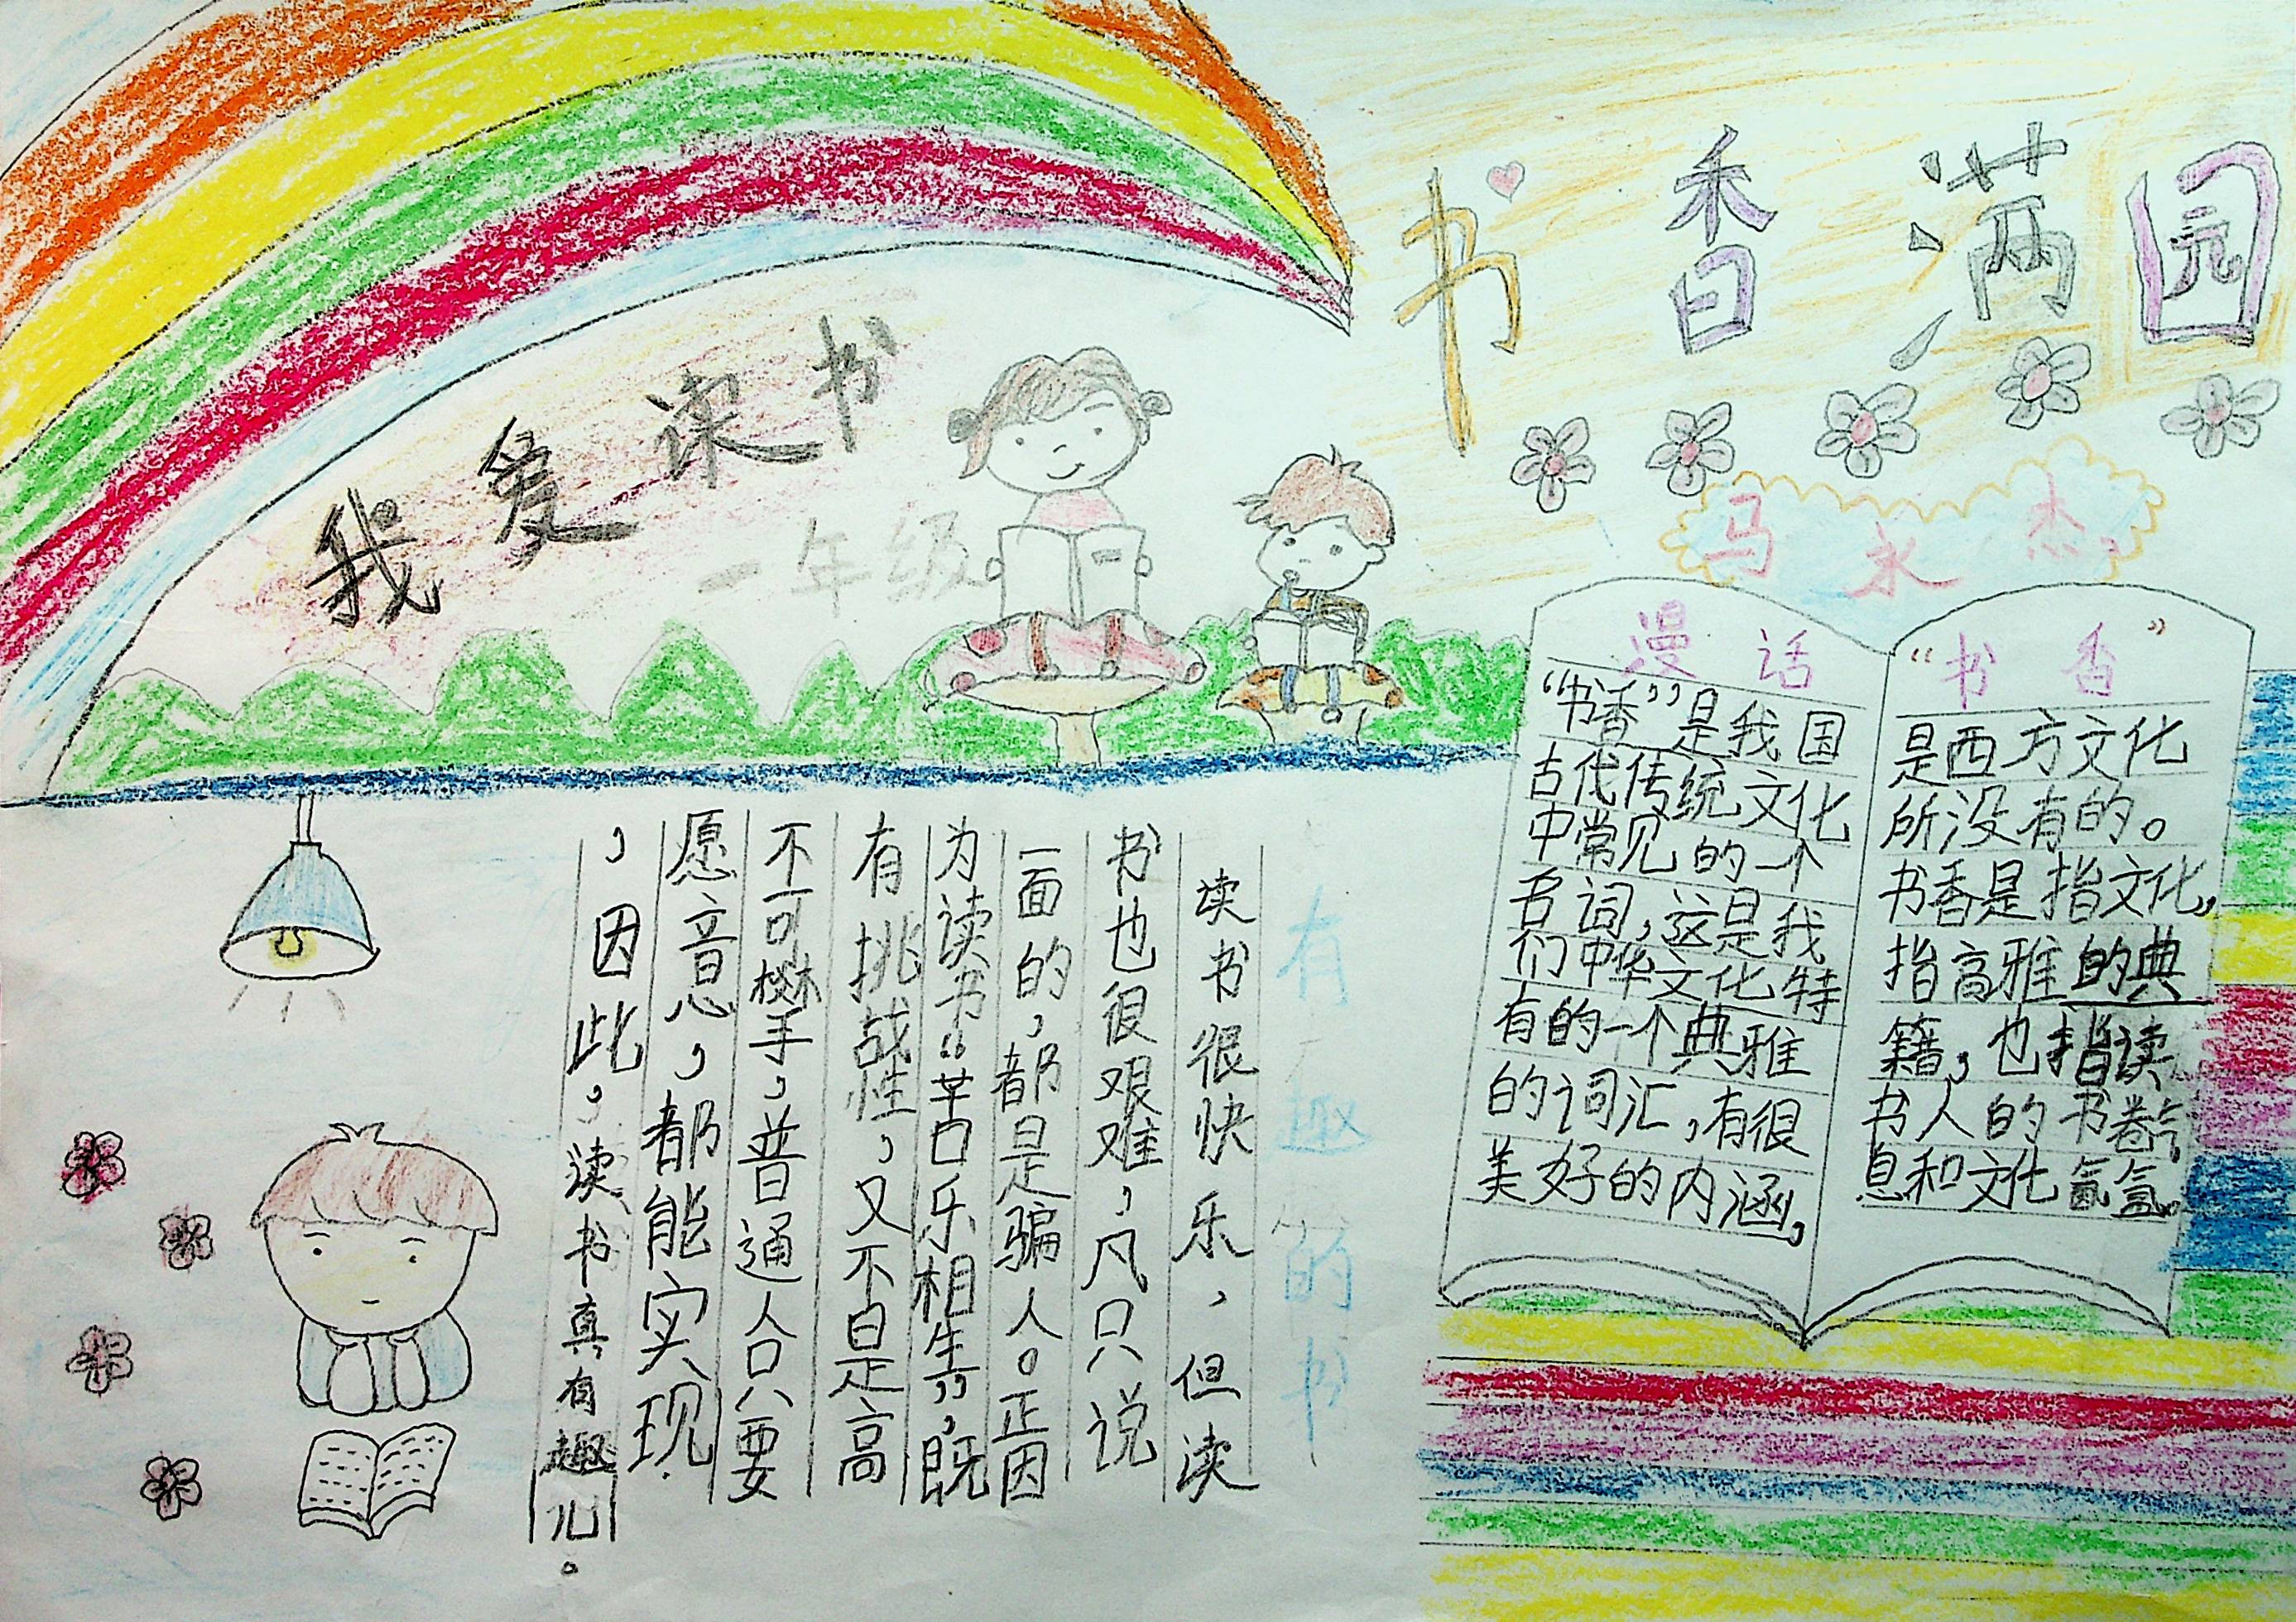 书香满园
我爱读书
一年级
马永杰
漫话“书香”
“书香”是我国
古代传统文化
中常见的一个
名词，这是我
们中华文化特
有的一个典雅
的词汇，有很
美好的内涵，
是西方文化
所没有的。
书香是指文化，
指高雅的典
籍，也指读
书人的书卷气
息和文化氤氲。
有趣的书
读书很快乐，但读
书也很艰难，凡只说
一面的，都是骗人。正因
为读书“苦乐相生”，既
有挑战性，又不是高
不可攀，普通人只要
愿意，都能实现
，因此，读书真有趣儿。